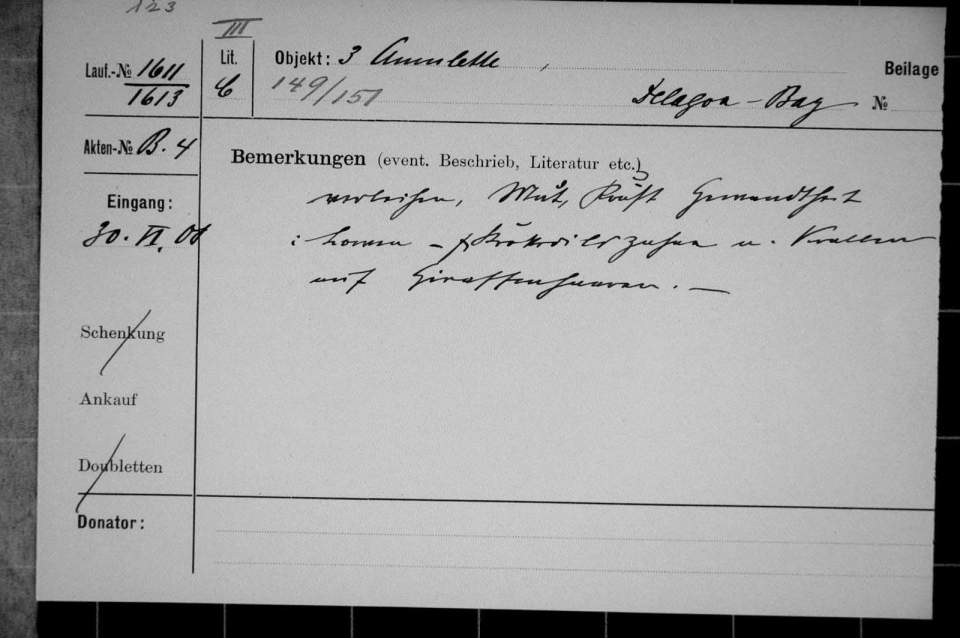 123
III
Lauf.-№ 1611
1613
Lit.
C
Objekt: 3 Amulette ,
149/151
Delagoa-Bay
Beilage
№
Akten-№ B. 4
Bemerkungen (event. Beschrieb, Literatur etc.)
verleihen, Mut, Kraft Gewandtheit
: Löwen - & Krokodilszähne u. Krallen
auf Giraffenhaaren. —
Eingang:
30. VI. 08
Schenkung
Ankauf
Doubletten
Donator: